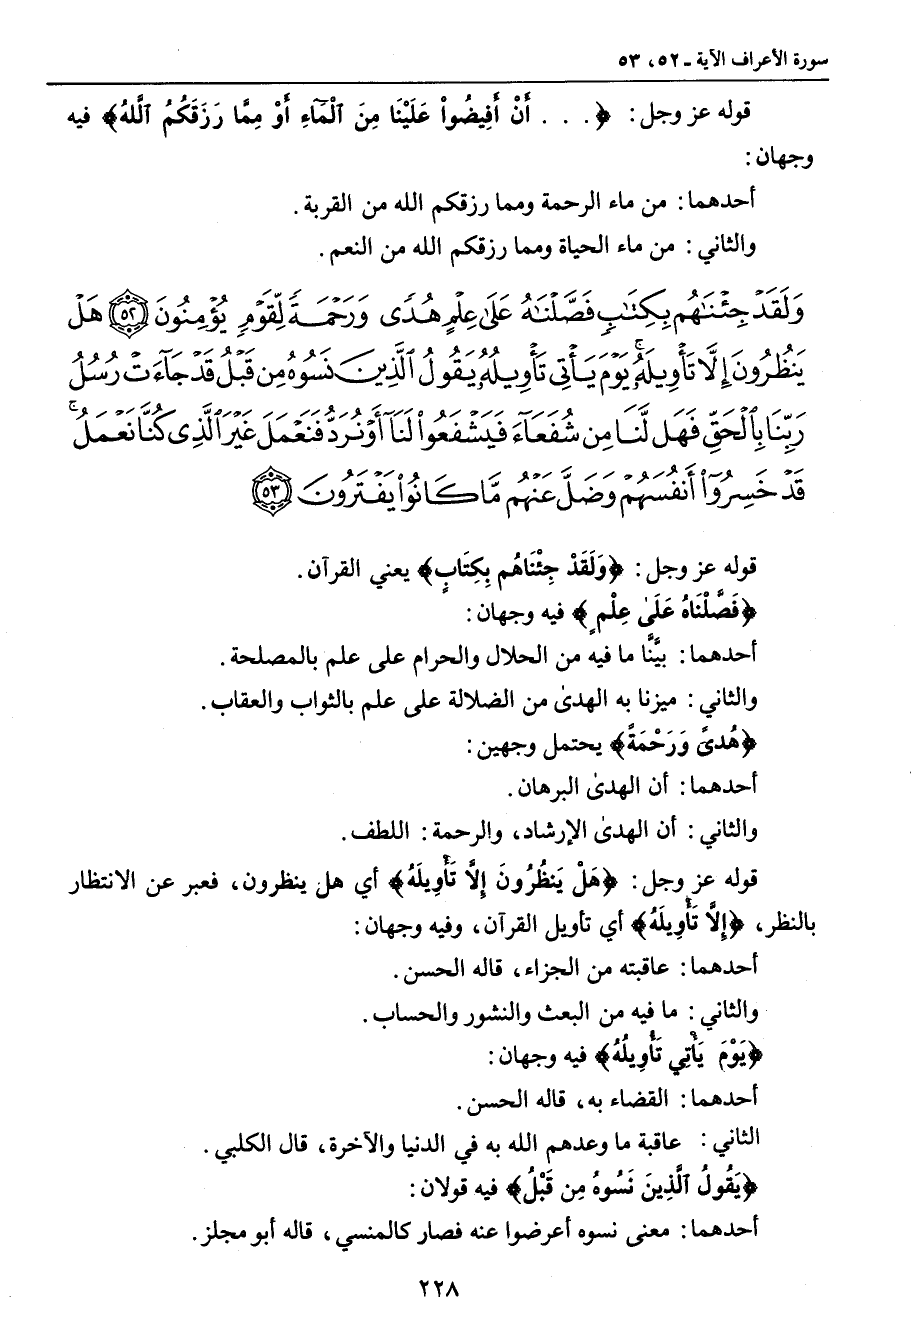 سورة الأعراف الآية ـ ٥٢، ٥٣
قوله عز وجل: ﴿. . . أَنْ أَفِيضُواْ عَلَيْنَا مِنَ ٱلْمَآءِ أَوْ مِمَّا رَزَقَكُمُ ٱللَّهُ﴾ فيه
وجهان:
أحدهما: من ماء الرحمة ومما رزقكم الله من القربة.
والثاني: من ماء الحياة ومما رزقكم الله من النعم.
وَلَقَدْ جِئْنَٰهُم بِكِتَٰبٍ فَصَّلْنَٰهُ عَلَىٰ عِلْمٍ هُدًى وَرَحْمَةً لِّقَوْمٍ يُؤْمِنُونَ ﴿٥٢﴾ هَلْ
يَنظُرُونَ إِلَّا تَأْوِيلَهُۥ ۚ يَوْمَ يَأْتِى تَأْوِيلُهُۥ يَقُولُ ٱلَّذِينَ نَسُوهُ مِن قَبْلُ قَدْ جَآءَتْ رُسُلُ
رَبِّنَا بِٱلْحَقِّ فَهَل لَّنَا مِن شُفَعَآءَ فَيَشْفَعُوا۟ لَنَآ أَوْ نُرَدُّ فَنَعْمَلَ غَيْرَ ٱلَّذِى كُنَّا نَعْمَلُ ۚ
قَدْ خَسِرُوٓا۟ أَنفُسَهُمْ وَضَلَّ عَنْهُم مَّا كَانُوا۟ يَفْتَرُونَ ﴿٥٣﴾
قوله عز وجل: ﴿وَلَقَدْ جِئْنَاهُم بِكِتَابٍ﴾ يعني القرآن.
﴿فَصَّلْنَاهُ عَلَىٰ عِلْمٍ﴾ فيه وجهان:
أحدهما: بيَّنَّا ما فيه من الحلال والحرام على علم بالمصلحة.
والثاني: ميزنا به الهدىٰ من الضلالة على علم بالثواب والعقاب.
﴿هُدىً وَرَحْمَةً﴾ يحتمل وجهين:
أحدهما: أن الهدىٰ البرهان.
والثاني: أن الهدىٰ الإرشاد، والرحمة: اللطف.
قوله عز وجل: ﴿هَلْ يَنظُرُونَ إِلَّا تَأْوِيلَهُ﴾ أي هل ينظرون، فعبر عن الانتظار
بالنظر، ﴿إِلَّا تَأْوِيلَهُ﴾ أي تأويل القرآن، وفيه وجهان:
أحدهما: عاقبته من الجزاء، قاله الحسن.
والثاني: ما فيه من البعث والنشور والحساب.
﴿يَوْمَ يَأْتِي تَأْوِيلُهُ﴾ فيه وجهان:
أحدهما: القضاء به، قاله الحسن.
الثاني: عاقبة ما وعدهم الله به في الدنيا والآخرة، قال الكلبي.
﴿يَقُولُ ٱلَّذِينَ نَسُوهُ مِن قَبْلُ﴾ فيه قولان:
أحدهما: معنى نسوه أعرضوا عنه فصار كالمنسي، قاله أبو مجلز.
٢٢٨